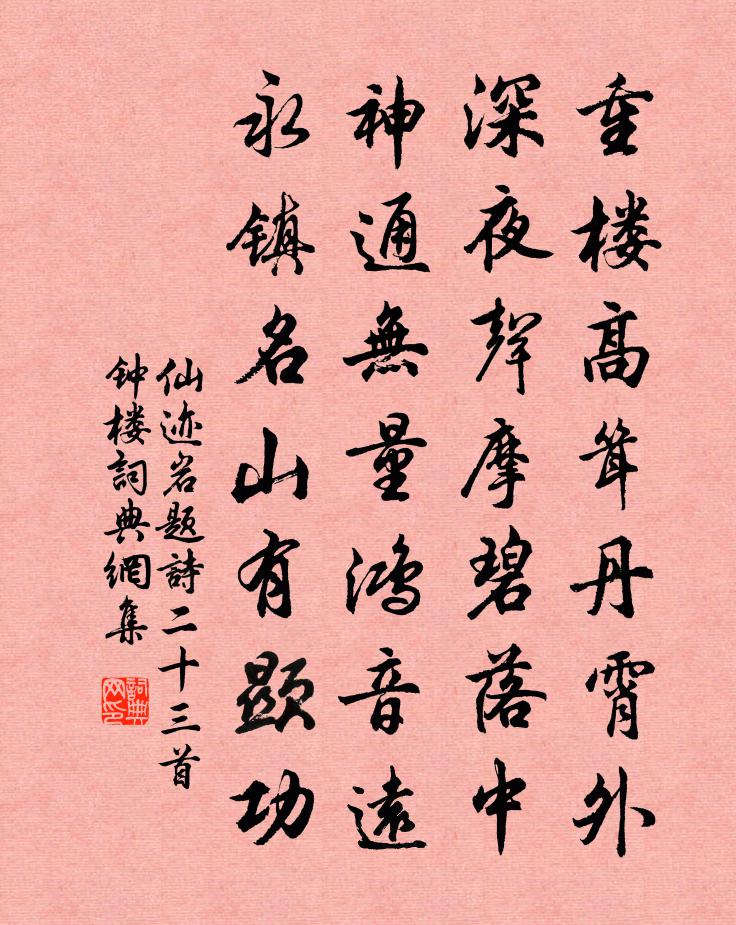 重楼高耸丹霄外
深夜聲摩碧落中
神通無量鴻音遠
永鎮名山有顯功
仙迹岩题詩二十三首
钟楼詞典網集
詞典
网印